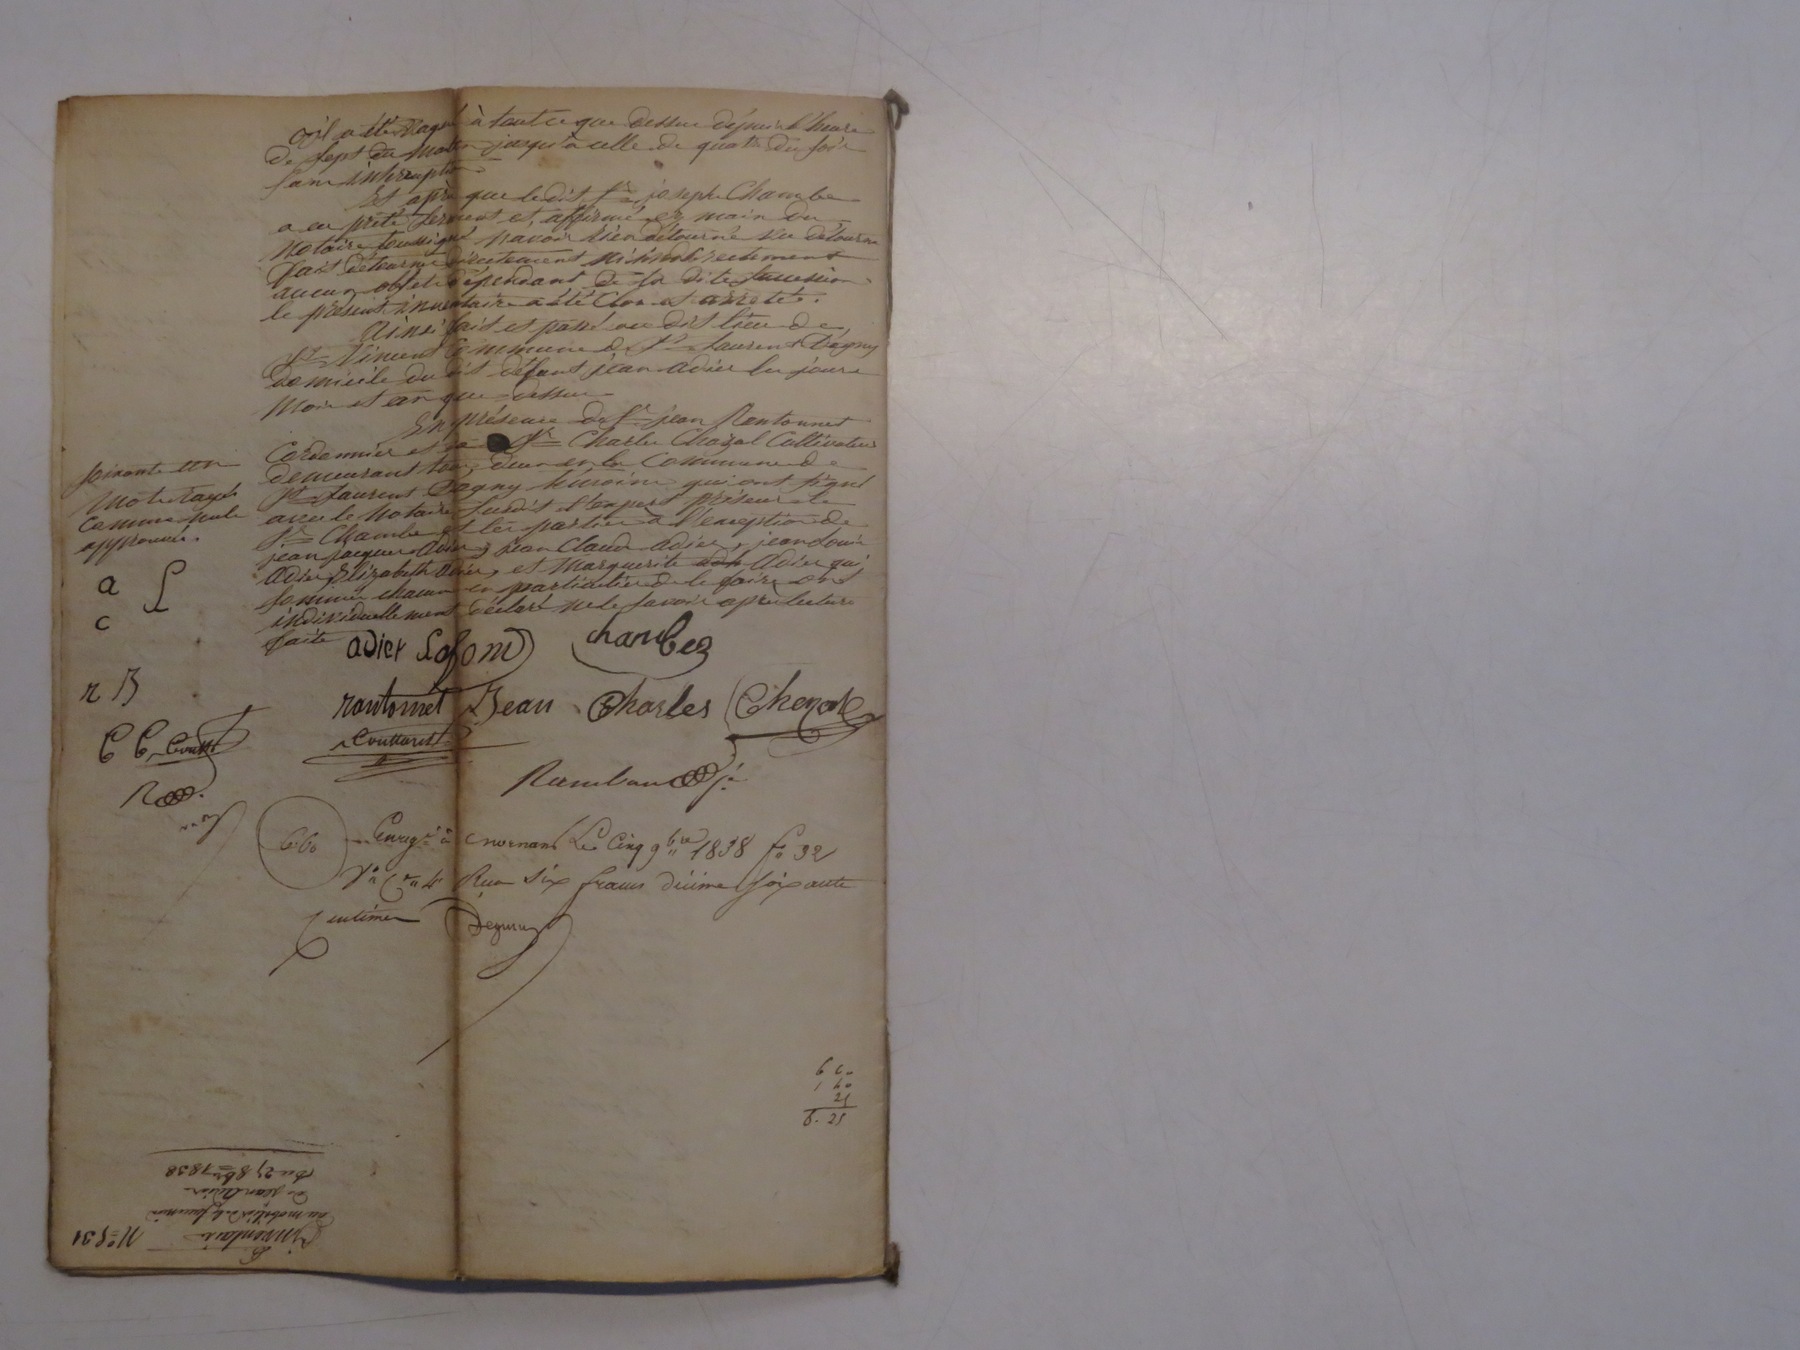 qu'il a été Vaqué à tout ce que dessus dépuis l'heure
de sept du Matin jusqu'à celle de quatre du soir
sans interruption.
Et après que le dit Sr. joseph Chambe
a eu prêté serment et affirmé ez main du
Notaire soussigné N'avoir Rien détourné vu détourner
fait détourner directement Ni indirectement
aucun objet dépendant de la dite succession
le présent inventaire a été Clos et arreté.
Ainsi fait et passé au dit lieu de
St. Vincent Commune de St. Laurent D'agny
domicile du dit défunt jean adier les jours
Mois et an que dessus
En présence de Sr. jean Rantonnet
Cordonnier et Sr. Charles Chazal Cultivateur
demeurant tous deux en la Commune de
St. Laurent D'agny témoins qui ont signé
avec le Notaire susdit l'expert priseur le
Sr. Chambe et les parties à l'exception de
jean jacques Adier, jean Claude adier, jean louis
Adier, Elizabeth adier, et Marguerite Adier qui
sommés chacun en particulier de le faire ont
individuellement déclaré ne le savoir après lecture
faite
soixante un
Mots rayés
Comme nuls
approuvés.
a L
c
r B
C C Coutt
R
adier Lafont Chambe
rantonnet Jean Charles
Couttaret
Rambaud je
6.60
Enreg. à Mornant Le Cinq 9bre 1838 fo 32
Vo Ce 4 Reçu Six francs décime Soixante
Centimes
6 60
1 60
25
8. 25
inventaire
du mobilier de la succession
de jean Adier
Du 27 8bre 1838
No 531